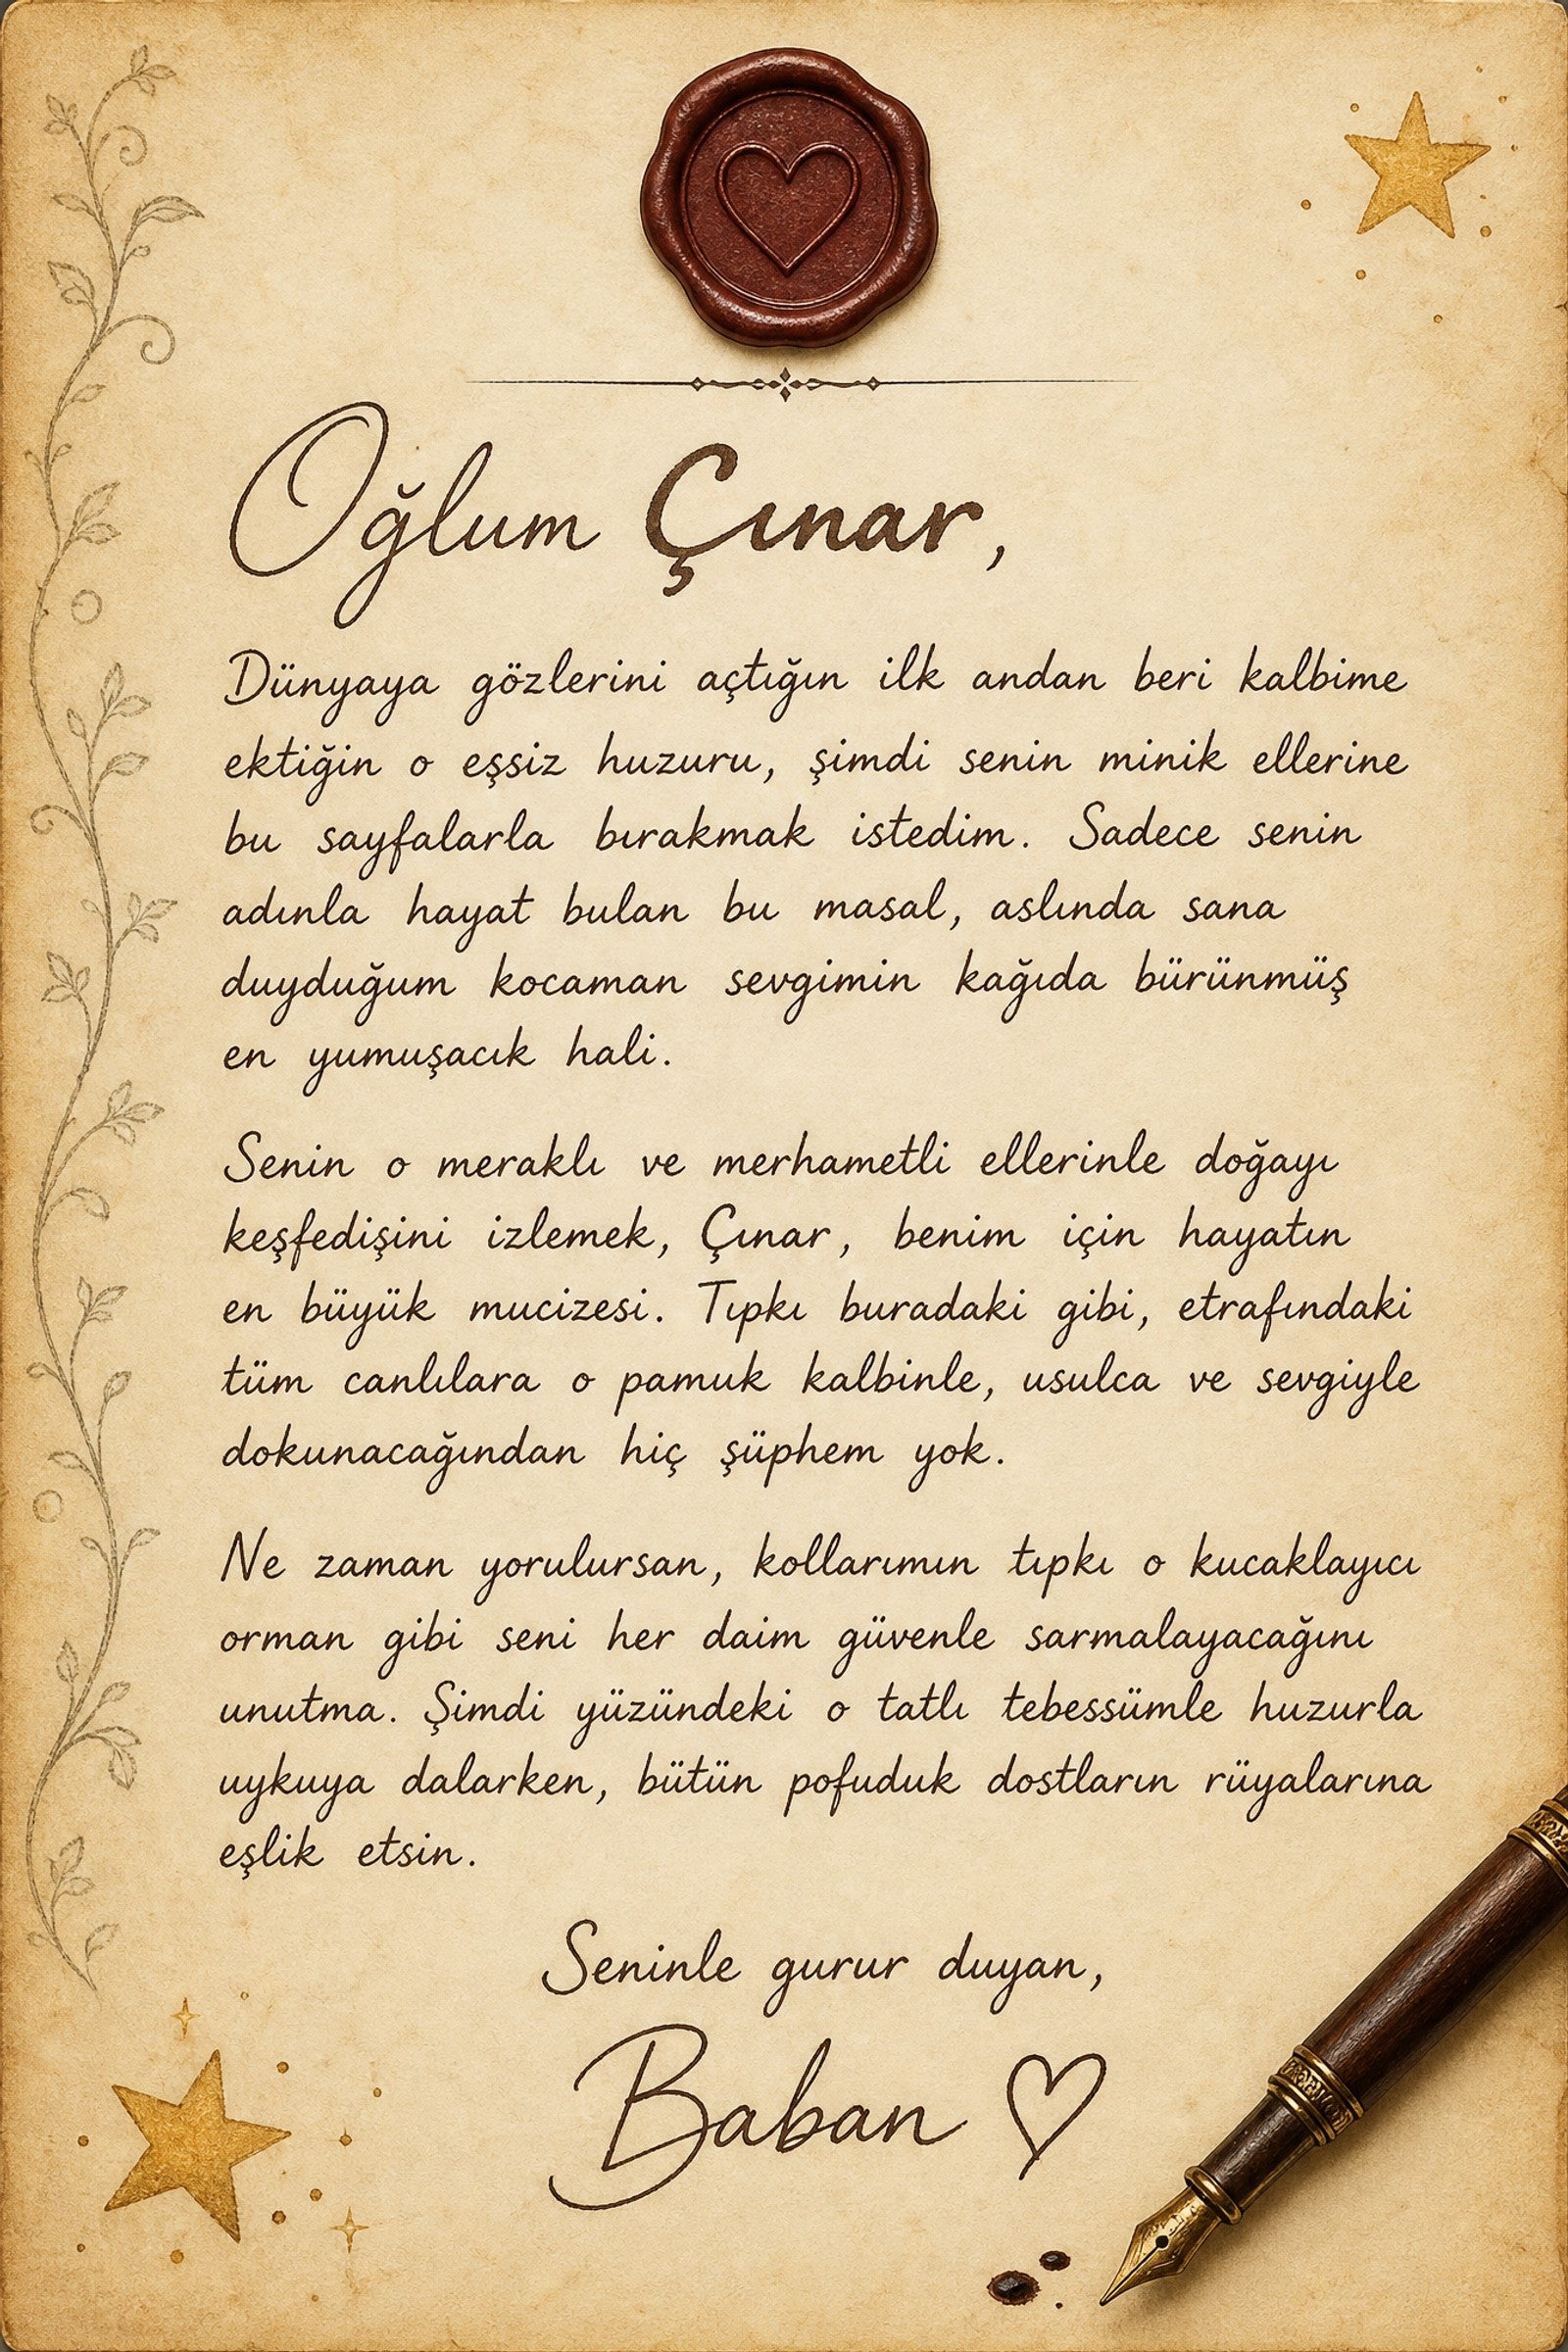 Oğlum Çınar,
Dünyaya gözlerini açtığın ilk andan beri kalbime
ektiğin o eşsiz huzuru, şimdi senin minik ellerine
bu sayfalarla bırakmak istedim. Sadece senin
adınla hayat bulan bu masal, aslında sana
duyduğum kocaman sevgimin kağıda bürünmüş
en yumuşacık hali.
Senin o meraklı ve merhametli ellerinle doğayı
keşfedişini izlemek, Çınar, benim için hayatın
en büyük mucizesi. Tıpkı buradaki gibi, etrafındaki
tüm canlılara o pamuk kalbinle, usulca ve sevgiyle
dokunacağından hiç şüphem yok.
Ne zaman yorulursan, kollarımın tıpkı o kucaklayıcı
orman gibi seni her daim güvenle sarmalayacağını
unutma. Şimdi yüzündeki o tatlı tebessümle huzurla
uykuya dalarken, bütün pofuduk dostların rüyalarına
eşlik etsin.
Seninle gurur duyan,
Baban ♡